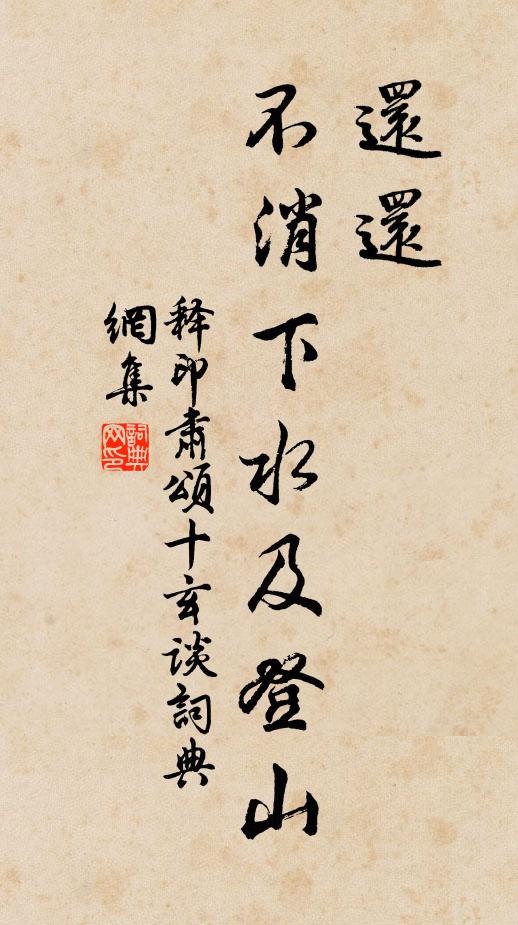 還還
不消下水及登山
释印肅頌十玄谈詞典
網集
詞典
网印